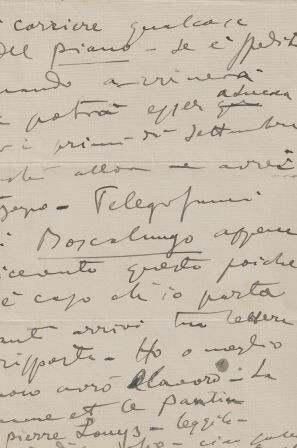 corriere qualcosa
del piano - se è spedit
uando arriverà
potrà esser qu a Lucca
i primi di Settembre
allora ne avrei
Telegrafami
Boscolungo appena
icevuto questo poichè
è caso ch'io parta
ant arrivi tua lettera
risposta - Ho o meglio
avrò lavoro - La
emme et le pantin
pierre Louÿs - leggilo -